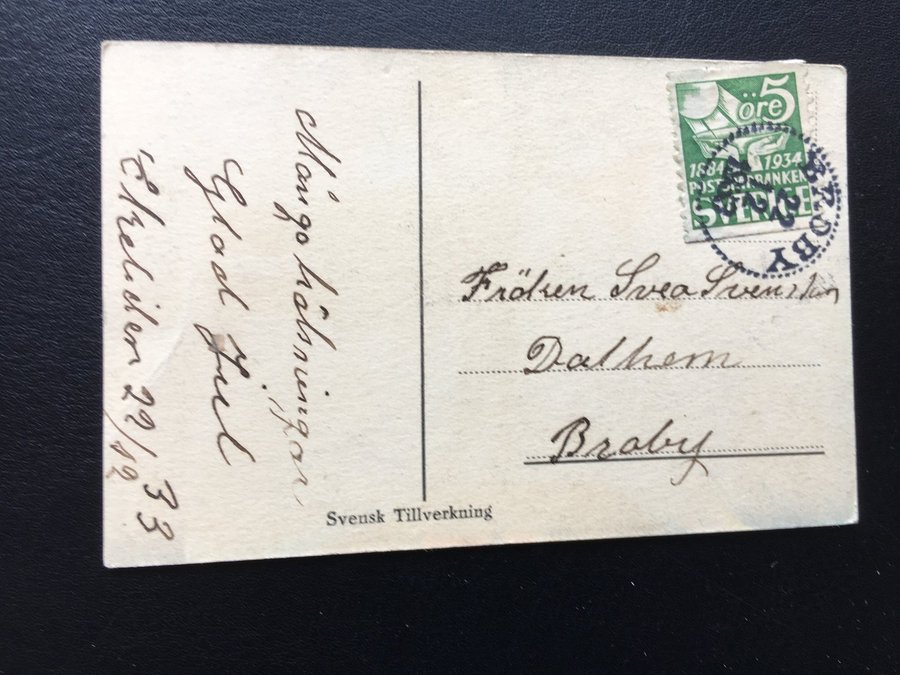 Många hälsningar
Glad Jul
Ekeliden 22/12 33
öre 5
1884 1934
POSTSPARBANKEN
SVERIGE
BROBY
22
12
Fröken Svea Svensson
Dalhem
Broby
Svensk Tillverkning